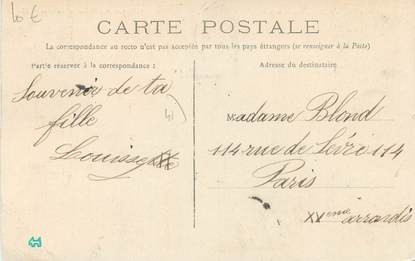 10 €
CARTE POSTALE
La correspondance au recto n'est pas acceptée par tous les pays étrangers (se renseigner à la Poste)
Partie réservée à la correspondance :
Adresse du destinataire
Souvenir de ta
fille
41
Madame Blond
114 rue de Sévre 114
Paris
XVeme arrondis